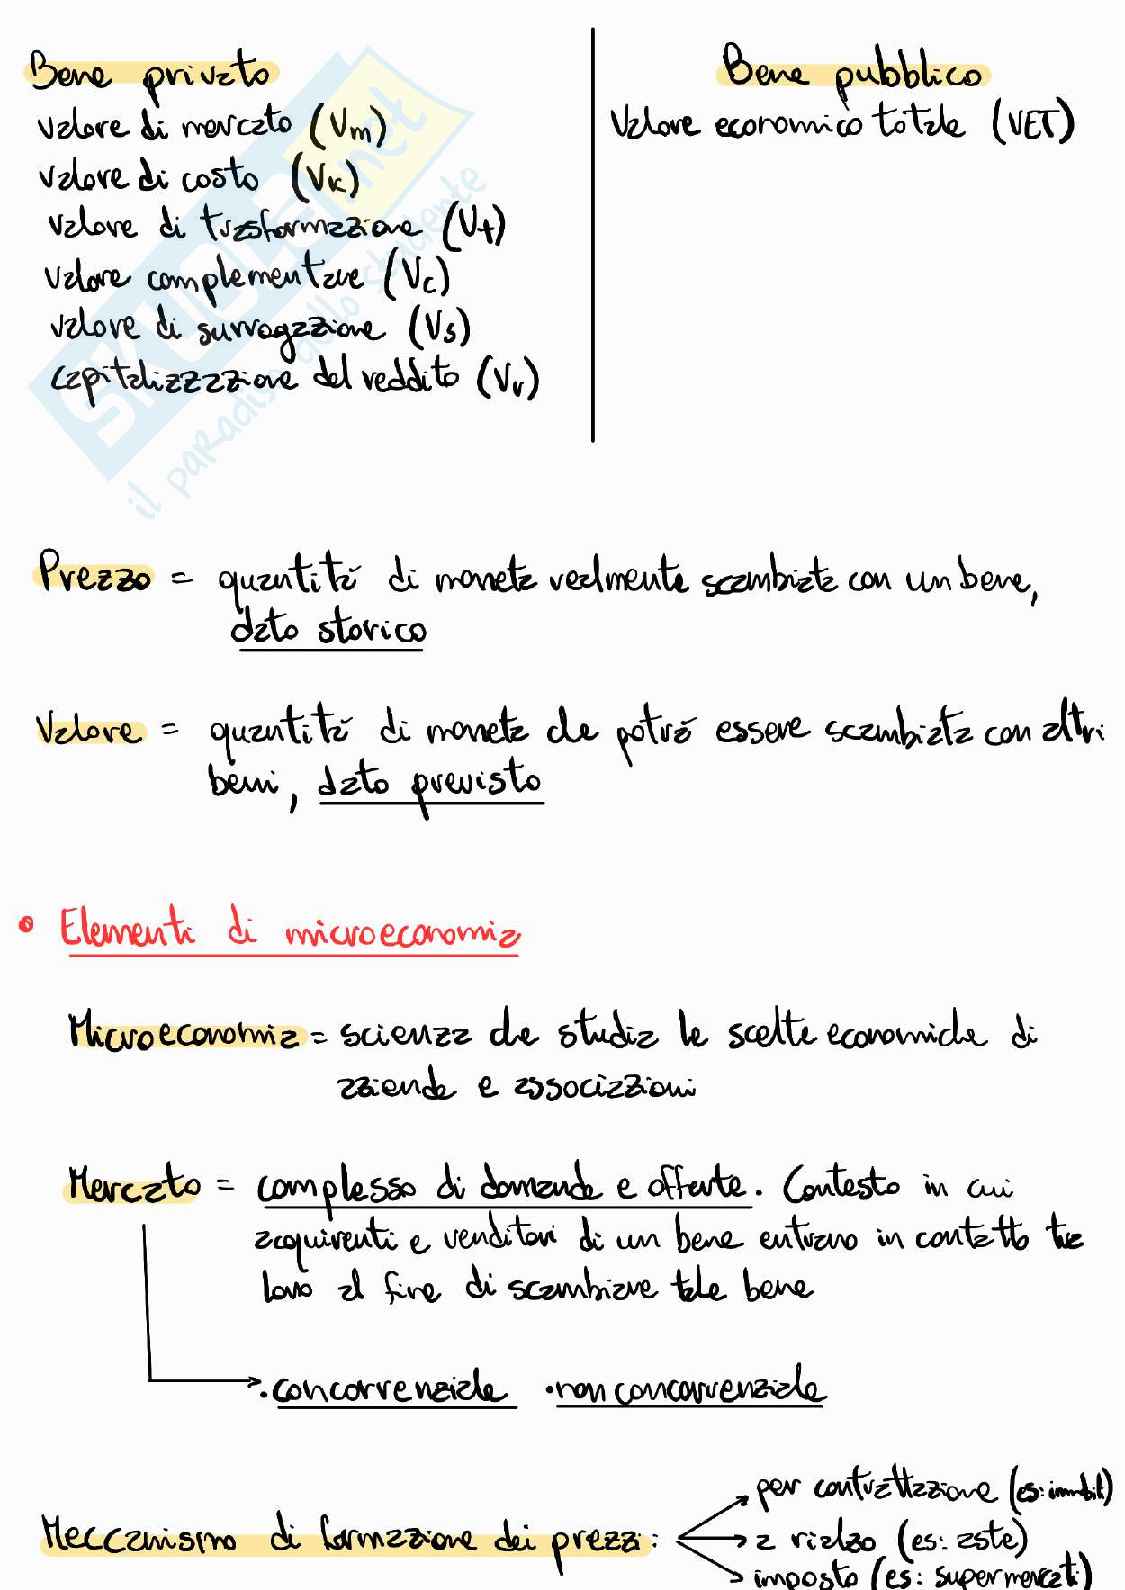 Bene privato
valore di mercato (Vm)
valore di costo (Vk)
valore di trasformazione (Vt)
valore complementare (Vc)
valore di surrogazione (Vs)
capitalizzazione del reddito (Vr)
Bene pubblico
Valore economico totale (VET)
SKUOLA.net
il paradiso dello studente
Prezzo = quantità di moneta realmente scambiata con un bene,
dato storico
Valore = quantità di moneta che potrà essere scambiata con altri
beni, dato previsto
• Elementi di microeconomia
Microeconomia = scienza che studia le scelte economiche di
aziende e associazioni
Mercato = complesso di domande e offerte. Contesto in cui
acquirenti e venditori di un bene entrano in contatto tra
loro al fine di scambiare tale bene
• concorrenziale • non concorrenziale
Meccanismo di formazione dei prezzi:
per contrattazione (es: immobili)
a rialzo (es: aste)
imposto (es: supermercati)